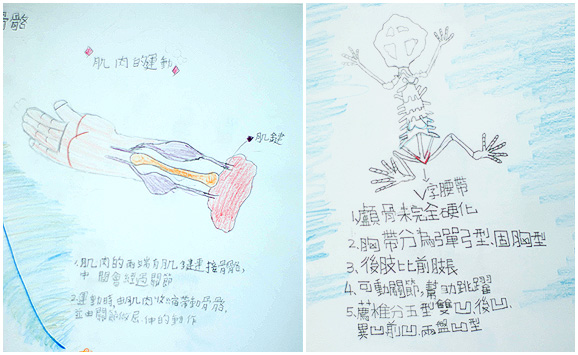 骨骼
肌肉的運動
肌鍵
1.肌肉的兩端有肌鍵連接骨骼,
中間會經過關節
2.運動時,由肌肉收縮帶動骨骼,
並由關節做屈伸的動作
V字腰帶
1.顱骨未完全硬化
2.胸帶分為弓彈弓型、固胸型
3.後肢比前肢長
4.可動關節,幫助跳躍
5.薦椎分五型雙凹、後凹、
異凹前凹、兩盤凹型